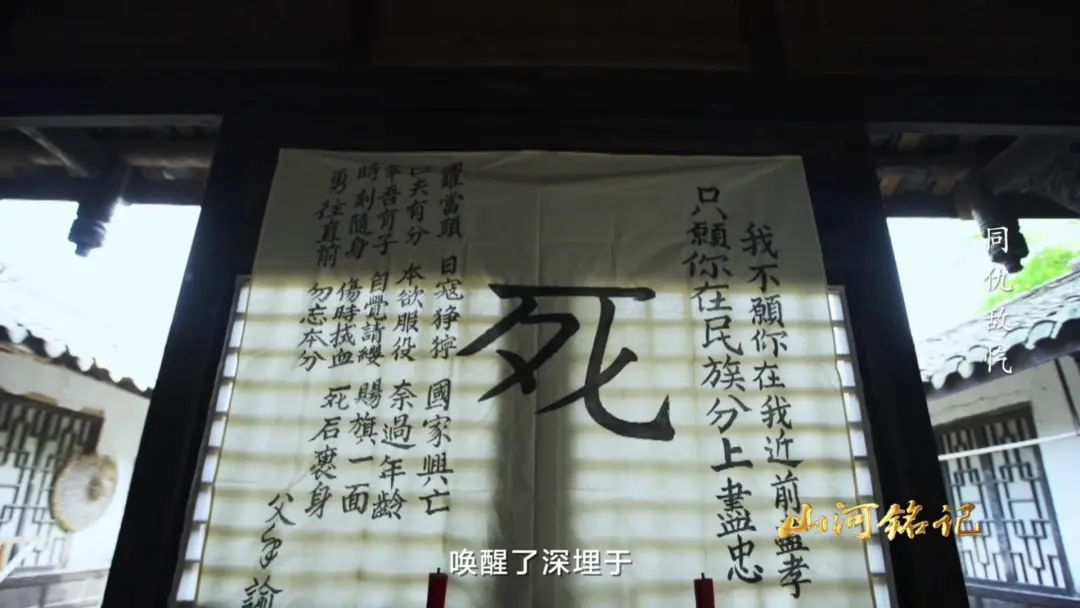 我不願你在我近前盡孝
只願你在民族分上盡忠
死
當頭 日寇猙獰 國家興亡
匹夫有分 本欲服役 奈過年齡
幸吾有子 自覺請纓 賜旗一面
時刻隨身 傷時拭血 死后裹身
勇往直前 勿忘本分
父手諭
同仇敌忾
山河铭记
唤醒了深埋于